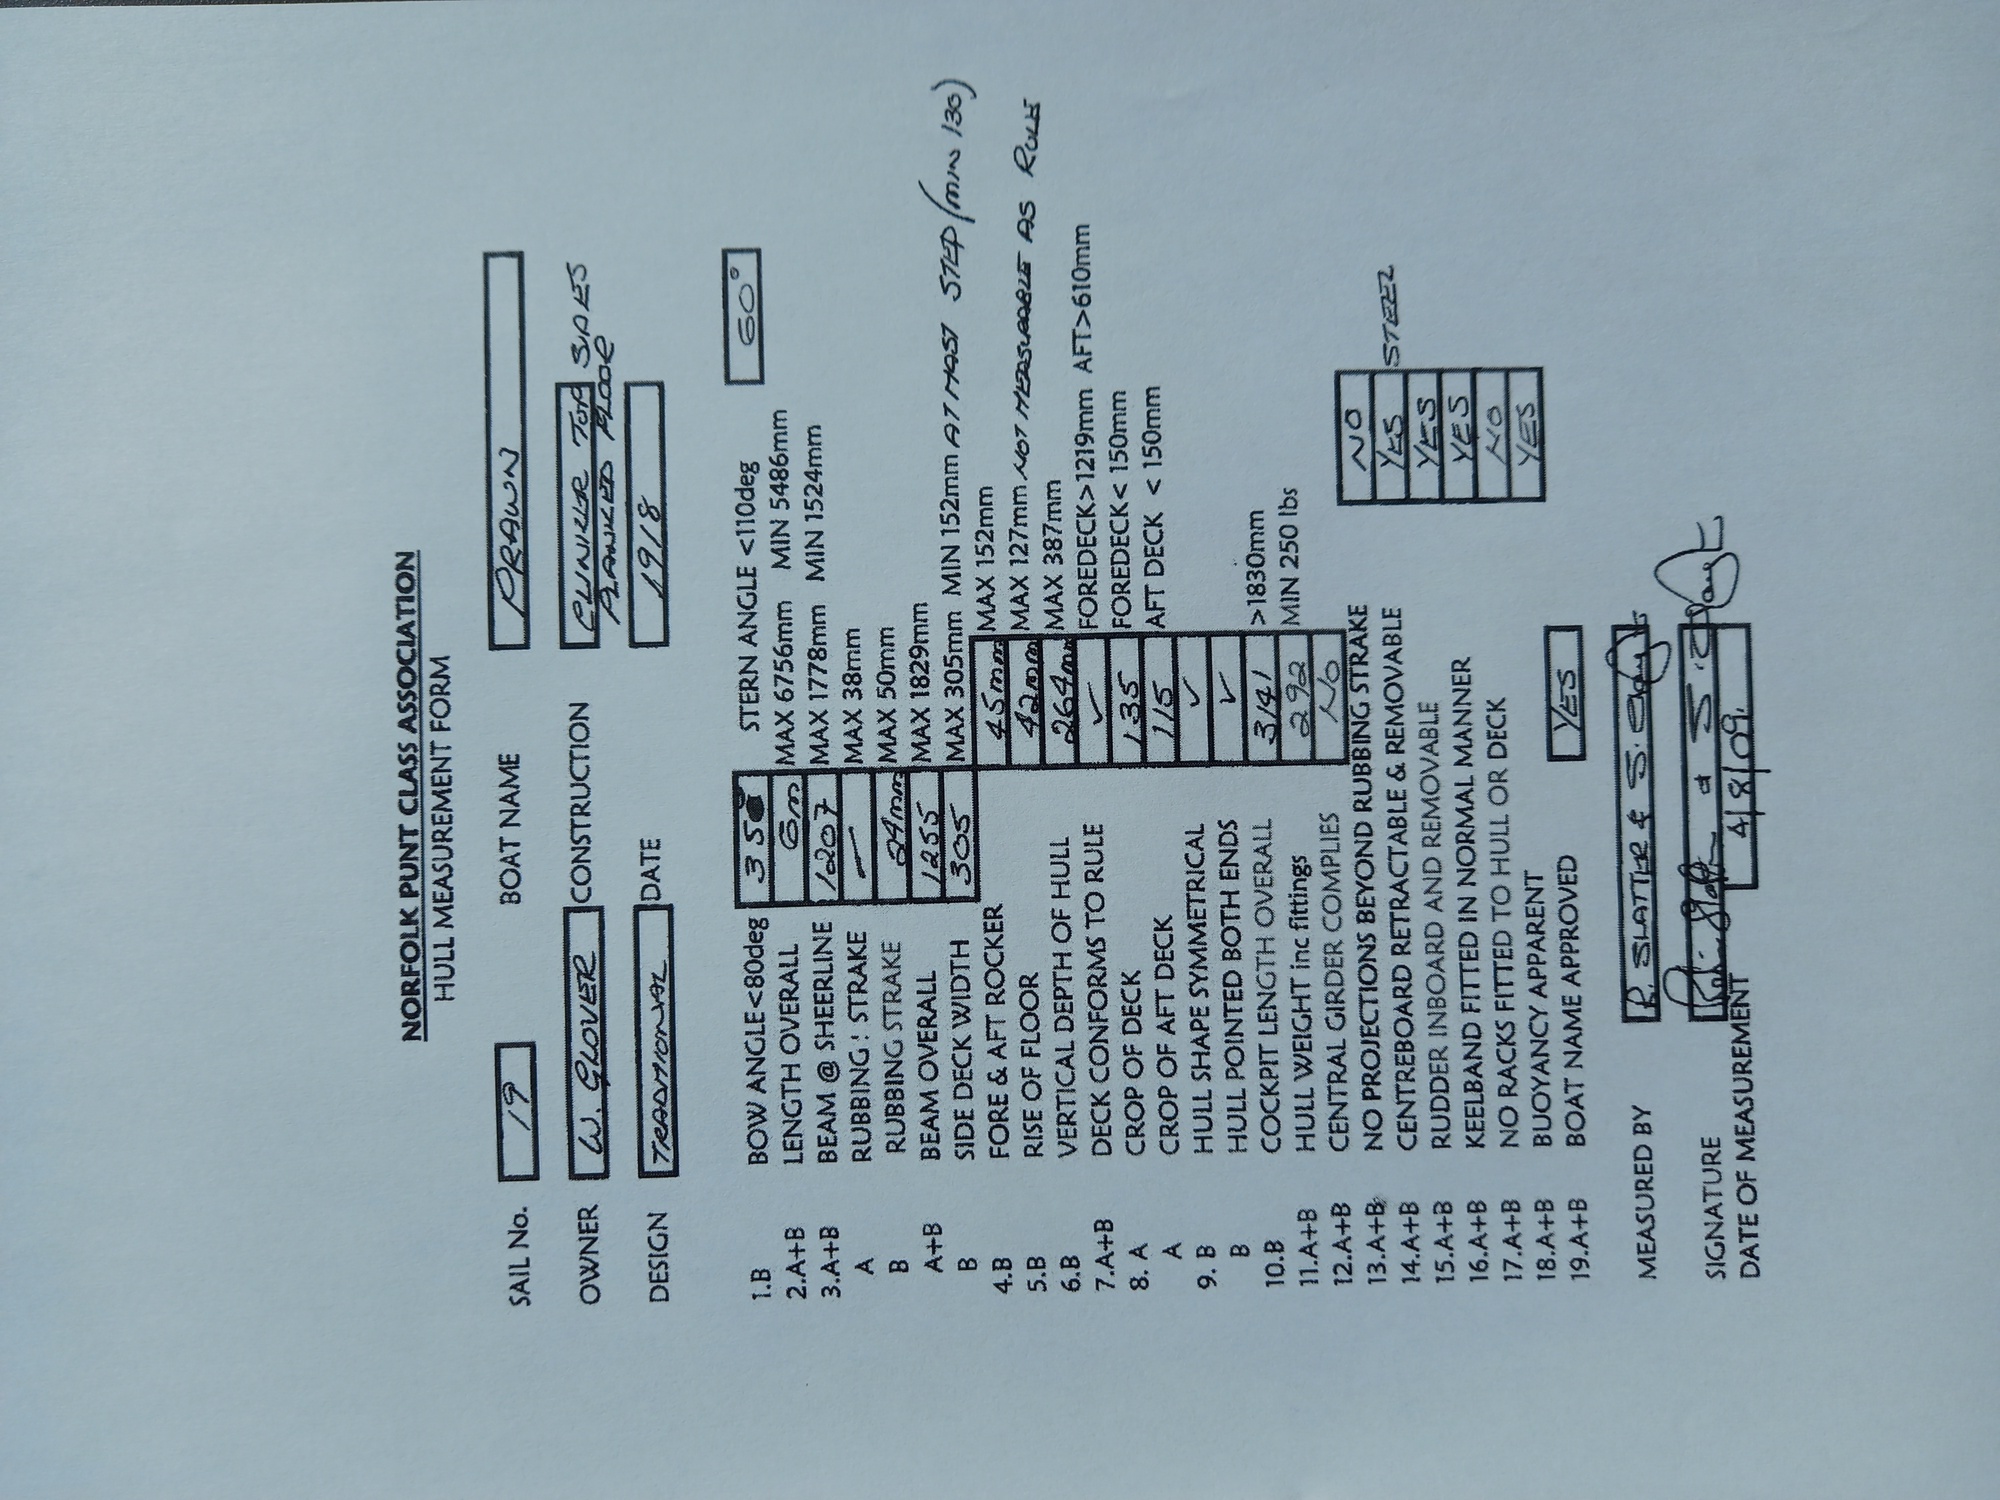 NORFOLK PUNT CLASS ASSOCIATION
HULL MEASUREMENT FORM
SAIL No. 19 BOAT NAME PRAWN
OWNER W. GLOVER CONSTRUCTION CLINKER TOP SIDES
PLANKED FLOOR
DESIGN TRADITIONAL DATE 1918
1.B BOW ANGLE<80deg 35° STERN ANGLE <110deg 60°
2.A+B LENGTH OVERALL 6m MAX 6756mm MIN 5486mm
3.A+B BEAM @ SHEERLINE 1207 MAX 1778mm MIN 1524mm
A RUBBING! STRAKE — MAX 38mm
B RUBBING STRAKE 24mm MAX 50mm
A+B BEAM OVERALL 1255 MAX 1829mm
B SIDE DECK WIDTH 305 MAX 305mm MIN 152mm AT MAST STEP (MIN 130)
4.B FORE & AFT ROCKER 45mm MAX 152mm
5.B RISE OF FLOOR 42mm MAX 127mm NOT MEASURABLE AS RULE
6.B VERTICAL DEPTH OF HULL 264mm MAX 387mm
7.A+B DECK CONFORMS TO RULE ✓ FOREDECK>1219mm AFT>610mm
8. A CROP OF DECK 135 FOREDECK< 150mm
A CROP OF AFT DECK 115 AFT DECK < 150mm
9. B HULL SHAPE SYMMETRICAL ✓
B HULL POINTED BOTH ENDS ✓
10.B COCKPIT LENGTH OVERALL 3141 >1830mm
11.A+B HULL WEIGHT inc fittings 292 MIN 250 lbs
12.A+B CENTRAL GIRDER COMPLIES No
13.A+B NO PROJECTIONS BEYOND RUBBING STRAKE NO
14.A+B CENTREBOARD RETRACTABLE & REMOVABLE YES STEEL
15.A+B RUDDER INBOARD AND REMOVABLE YES
16.A+B KEELBAND FITTED IN NORMAL MANNER YES
17.A+B NO RACKS FITTED TO HULL OR DECK NO
18.A+B BUOYANCY APPARENT YES
19.A+B BOAT NAME APPROVED YES
MEASURED BY R. SLATTER & S.
SIGNATURE & S.
DATE OF MEASUREMENT 4/8/09.